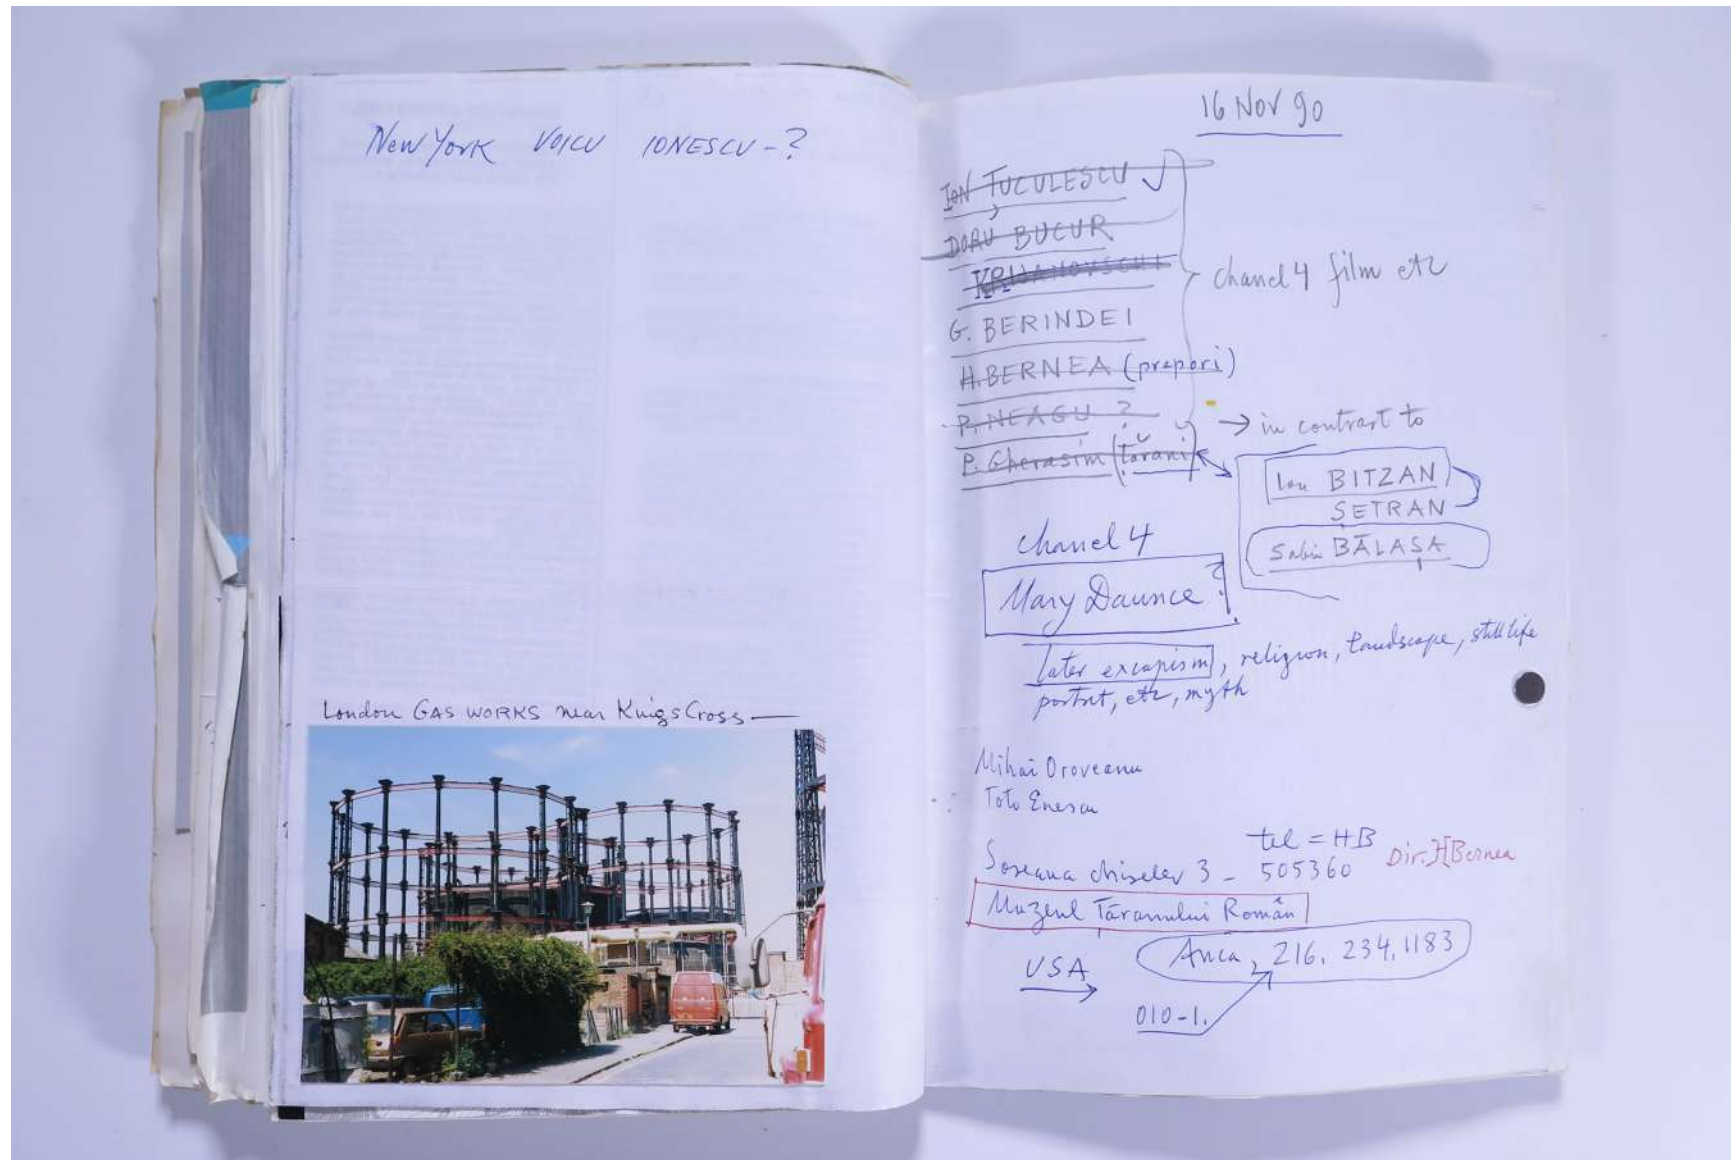 New York VOICU IONESCU - ?
London GAS WORKS near Kings Cross —
16 Nov 90
ION TUCULESCU ✓
DORU BUCUR
KRIJANOVSCHI
G. BERINDEI
H. BERNEA (prapori)
P. NEAGU ?
P. Gherasim (țărani)
chanel 4 film etc
→ in contrast to
Ion BITZAN
SETRAN
Sabin BĂLAȘA
chanel 4
Mary Daunce ?
later excapism, religion, landscape, still life
portret, etc, myth
Mihai Oroveanu
Toto Enescu
tel = HB
Soseaua chiselev 3 - 505360 Dir. H Bernea
Muzeul Țăranului Român
USA Anca, 216. 234. 1183
010-1.